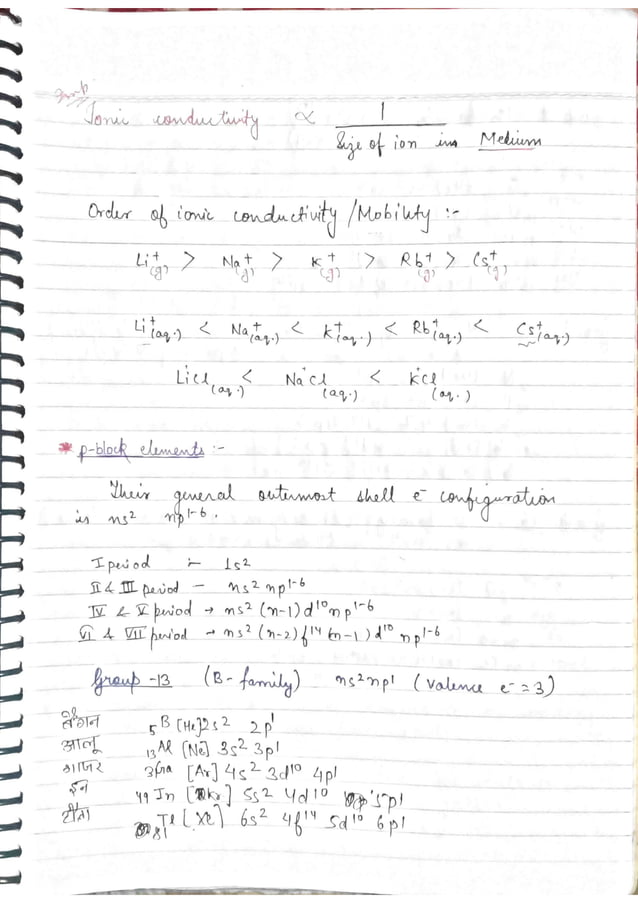 Imp
Ionic conductivity ∝ 1 / Size of ion in Medium
Order of ionic conductivity /Mobility :-
Li⁺(g) > Na⁺(g) > K⁺(g) > Rb⁺(g) > Cs⁺(g)
Li⁺(aq.) < Na⁺(aq.) < K⁺(aq.) < Rb⁺(aq.) < Cs⁺(aq.)
LiCl(aq.) < NaCl(aq.) < KCl(aq.)
* p-block elements :-
Their general outermost shell e⁻ configuration
is ns² np¹⁻⁶.
I period :- 1s²
II & III period - ns² np¹⁻⁶
IV & V period → ns² (n-1)d¹⁰ np¹⁻⁶
VI & VII period → ns² (n-2)f¹⁴ (n-1)d¹⁰ np¹⁻⁶
Group -13 (B-family) ns²np¹ (valence e⁻ = 3)
बैंगन ₅B [He]2s² 2p¹
आलू ₁₃Al [Ne] 3s² 3p¹
गाजर ₃Ga [Ar] 4s² 3d¹⁰ 4p¹
इन ₄₉In [Kr] 5s² 4d¹⁰ 5p¹
₈₁Tl [Xe] 6s² 4f¹⁴ 5d¹⁰ 6p¹